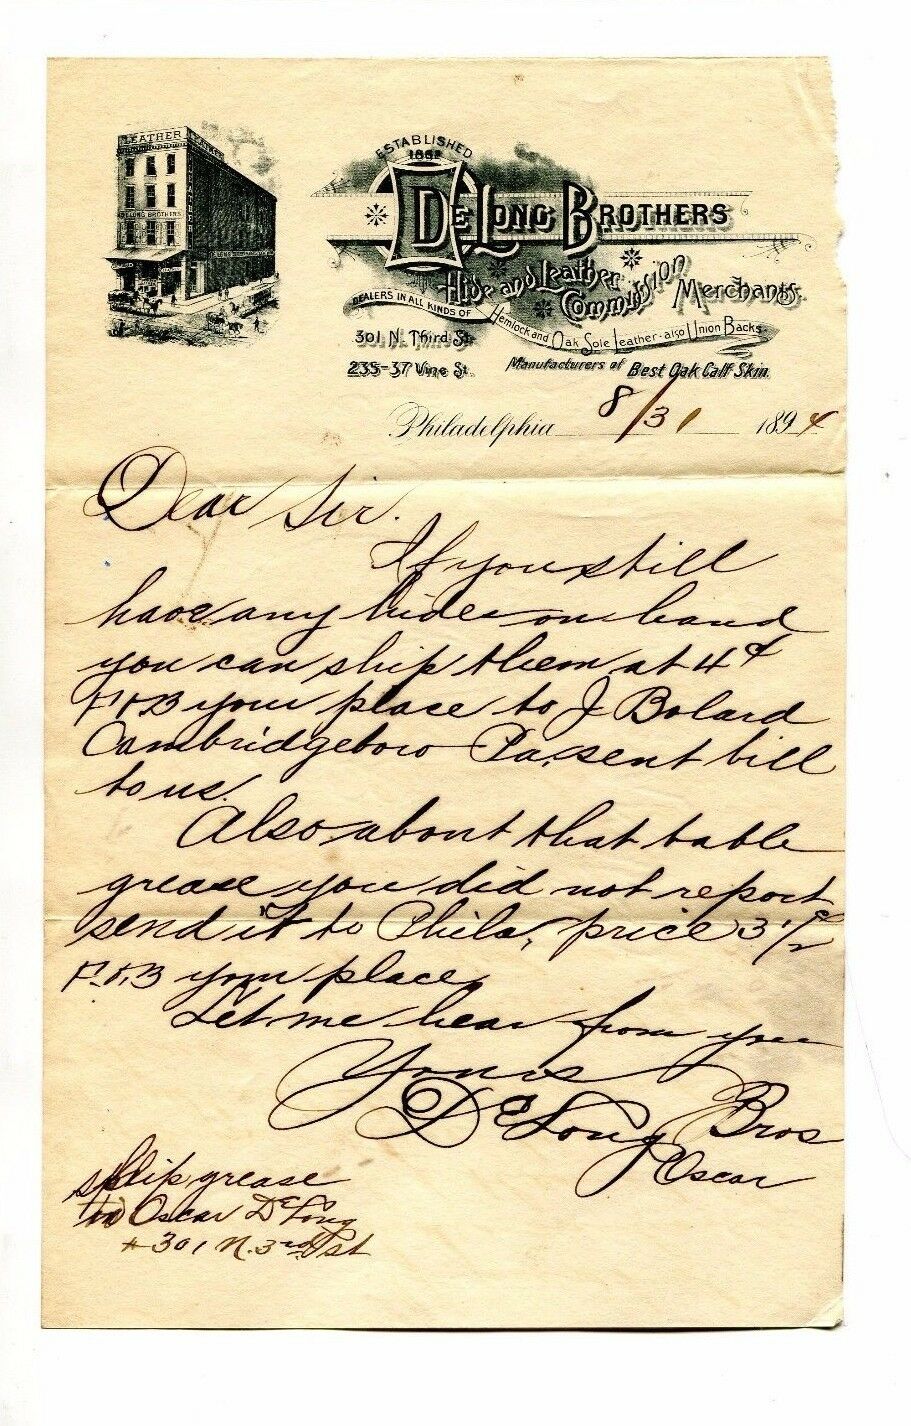 LEATHER
DELONG BROTHERS
ESTABLISHED
DeLong Brothers
Hide and Leather
Commission Merchants.
DEALERS IN ALL KINDS OF
Hemlock and Oak Sole Leather - also Union Backs
301 N. Third St.
235-37 Vine St.
Manufacturers of Best Oak Calf Skin.
Philadelphia 8/31 1894
Dear Sir.
If you still
have any hides on hand
you can ship them at 4¢
F.O.B your place to J Bolard
Cambridgeboro Pa, sent bill
to us.
Also about that table
grease you did not report
send it to Phila, price 3 1/2¢
F.O.B your place,
Let me hear from you
Yours
DeLong Bros
Oscar
ship grease
to Oscar DeLong
# 301 N. 3rd st